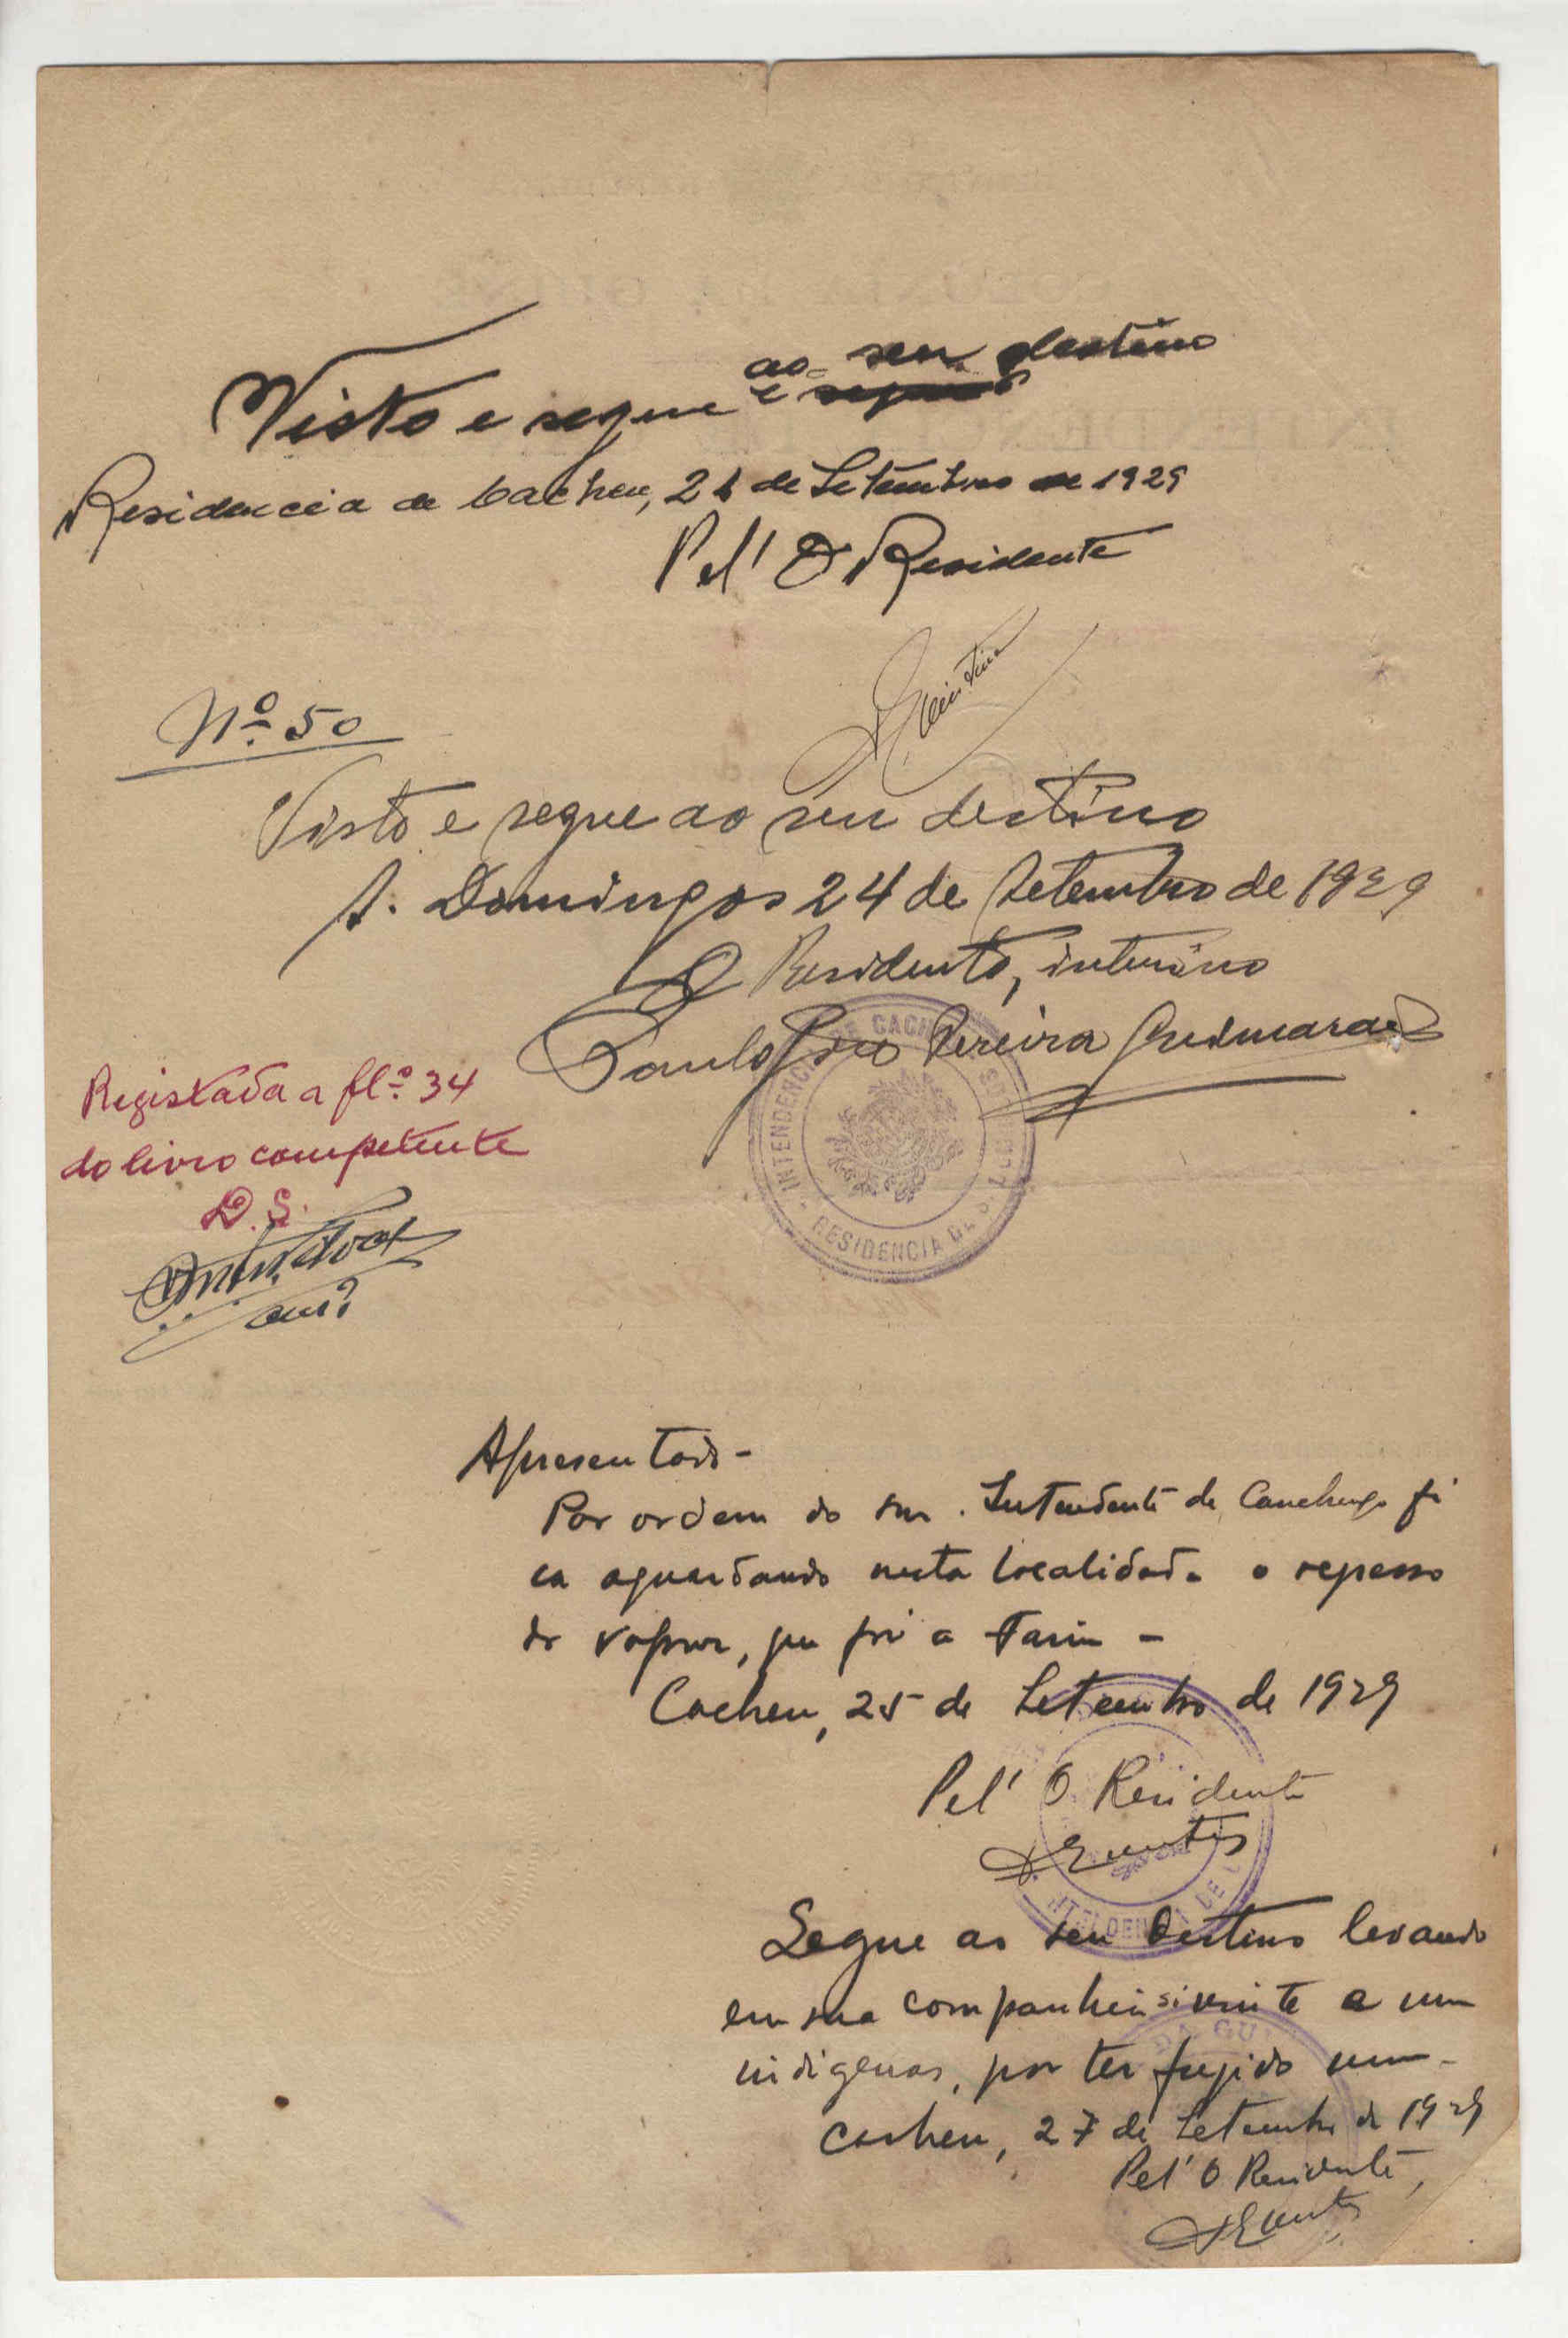 ao seu destino
Visto e segue e
Residencia de Cacheu, 21 de Setembro de 1929
Pel' O Residente
Nº 50
Visto e segue ao seu destino
S. Domingos 24 de Setembro de 1929
O Residente, interino
Paulo Pereira Guimarães
INTENDENCIA DE CACHEU
RESIDENCIA DE S.
Registada a flº 34
do livro competente
D. S.
Apresentado -
Por ordem do snr. Intendente de Canchungo fi
ca aguardando nesta localidade o regresso
do vapor, que foi a Farim -
Cacheu, 25 de Setembro de 1929
Pel' O Residente
Segue ao seu destino levando
em sua companhia vinte e um
indigenas, por ter fugido um -
Cacheu, 27 de Setembro de 1929
Pel' O Residente,